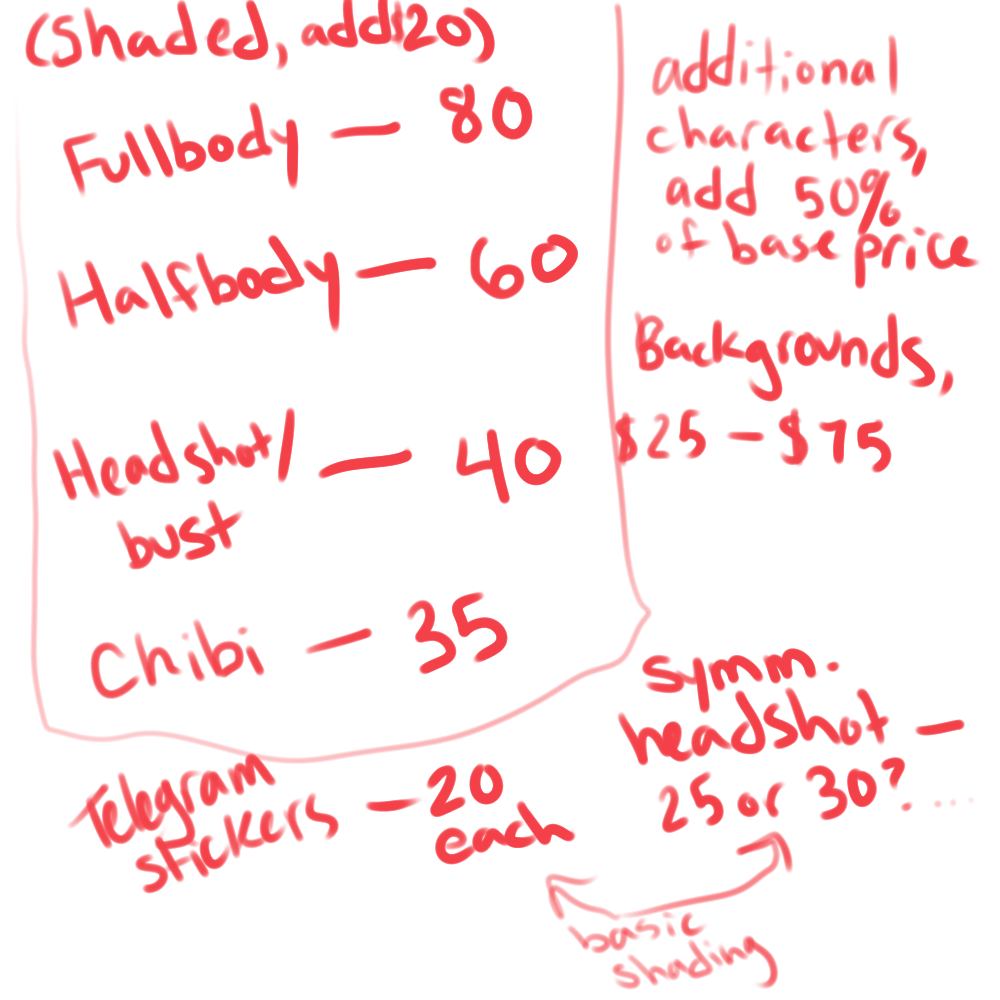 (Shaded, add $20)
Fullbody — 80
Halfbody — 60
Headshot/ — 40
bust
Chibi — 35
additional
characters,
add 50%
of base price
Backgrounds,
$25 - $75
Symm.
headshot —
25 or 30?....
Telegram
stickers — 20
each
basic
shading